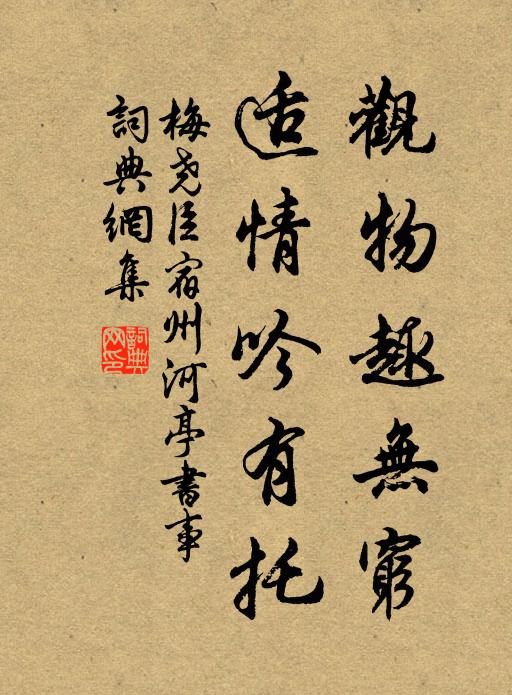 觀物趣無窮
适情吟有托
梅堯臣宿州河亭書事
詞典網集
詞典網印